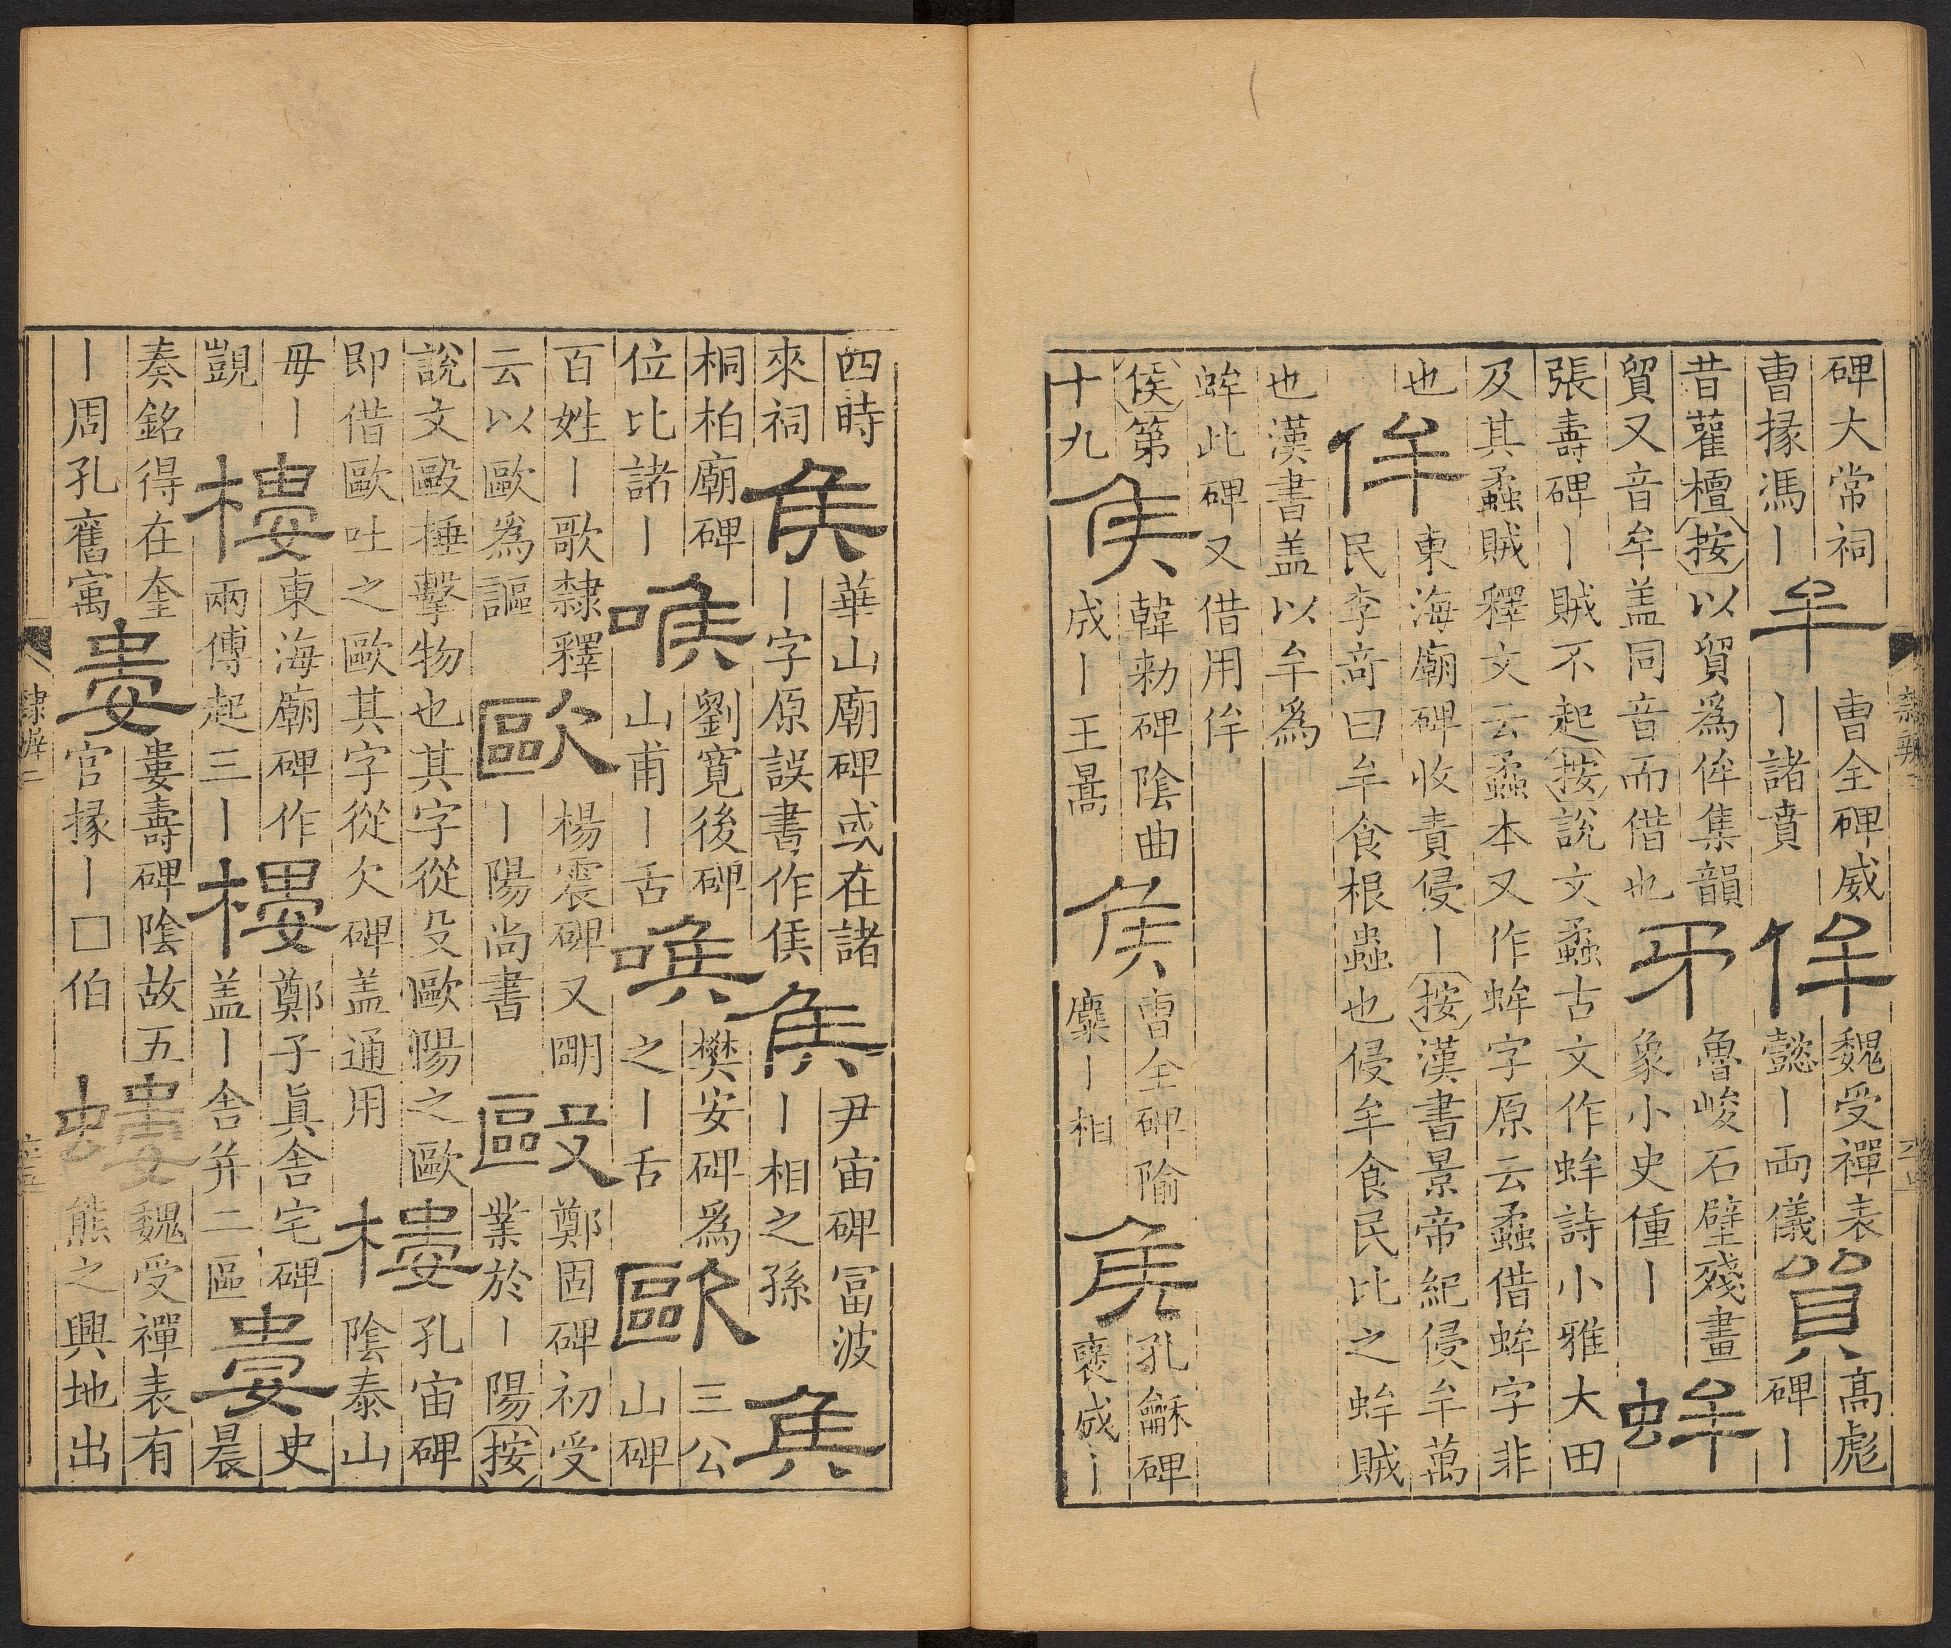 隸辨
碑大常祠
曹掾馮丨
牟
曹全碑威
丨諸賁
侔
魏受禪表
懿丨兩儀
貿
高彪
碑丨
昔雚檀按以貿爲侔集韻
貿又音牟盖同音而借也
矛
魯峻石壁殘畫
象小史僮丨
蛑
張壽碑丨賊不起按說文蟊古文作蛑詩小雅大田
及其蟊賊釋文云蟊本又作蛑字原云蟊借蛑字非
也
侔
東海廟碑收責侵丨按漢書景帝紀侵牟萬
民李竒曰牟食根蟲也侵牟食民比之蛑賊
也漢書盖以牟爲
蛑此碑又借用侔
侯第
十九
侯
韓勑碑陰曲
成丨王暠
侯
曹全碑陰
麋丨相
侯
孔龢碑
襃成丨
四時
來祠
侯
華山廟碑或在諸
丨字原誤書作侯
侯
尹宙碑冨波
丨相之孫
侯
桐柏廟碑
位比諸丨
喉
劉寬後碑
山甫丨舌
喉
樊安碑爲
之丨舌
歐
三公
山碑
百姓丨歌隸釋
云以歐爲謳
歐
楊震碑又朙
丨陽尚書
毆
鄭固碑初受
業於丨陽按
說文毆捶擊物也其字從殳歐陽之歐
即借歐吐之歐其字從欠碑盖通用
樓
孔宙碑
陰泰山
毋丨
覬
樓
東海廟碑作
兩傅起三丨
樓
鄭子眞舍宅碑
盖丨舍并二區
婁
史
晨
奏銘得在奎
丨周孔舊㝢
婁
婁壽碑陰故五
官掾丨□伯
螻
魏受禪表有
熊之興地出
隸辨二